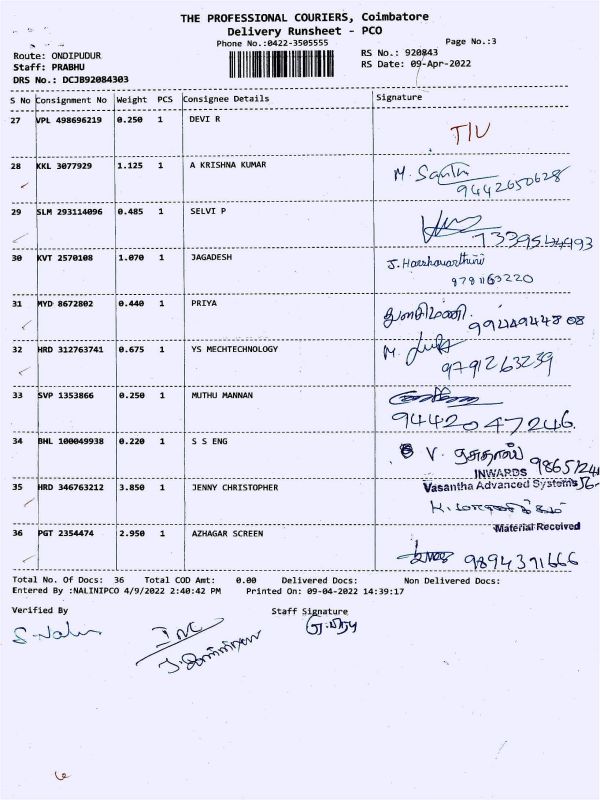 THE PROFESSIONAL COURIERS, Coimbatore
Delivery Runsheet - PCO
Phone No.:0422-3505555
Page No.:3
Route: ONDIPUDUR
RS No.: 920843
Staff: PRABHU
RS Date: 09-Apr-2022
DRS No.: DCJB92084303
S No Consignment No Weight PCS Consignee Details Signature
27 VPL 498696219 0.250 1 DEVI R
28 KKL 3077929 1.125 1 A KRISHNA KUMAR M.
9442650628
29 SLM 293114096 0.485 1 SELVI P
7339544493
30 KVT 2570108 1.070 1 JAGADESH
9791163220
31 MYD 8672802 0.440 1 PRIYA
9944944808
32 HRD 312763741 0.675 1 YS MECHTECHNOLOGY M.
9791263239
33 SVP 1353866 0.250 1 MUTHU MANNAN
9442047246.
34 BHL 100049938 0.220 1 S S ENG V.
INWARDS
35 HRD 346763212 3.850 1 JENNY CHRISTOPHER Vasantha Advanced Systems
K.
36 PGT 2354474 2.950 1 AZHAGAR SCREEN Material Received
9894371666
Total No. Of Docs: 36 Total COD Amt: 0.00 Delivered Docs: Non Delivered Docs:
Entered By :NALINIPCO 4/9/2022 2:40:42 PM Printed On: 09-04-2022 14:39:17
Verified By Staff Signature